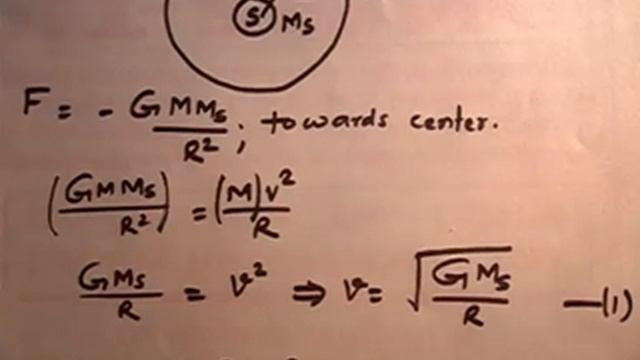 S Ms
F = - GMMs/R²; towards center.
(GMMs/R²) = (M)v²/R
GMs/R = v² ⇒ v = √(GMs/R) —(1)